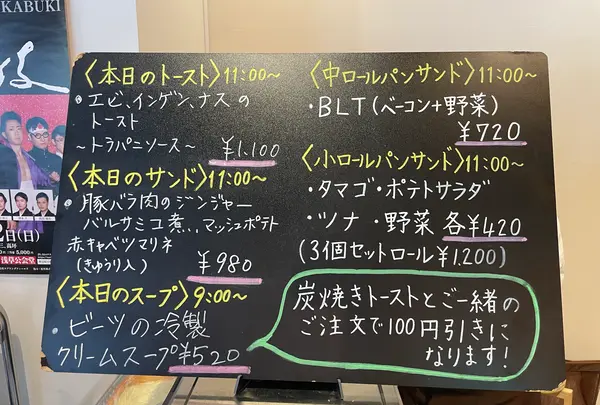 KABUKI
〈本日のトースト〉11:00~
・エビ、インゲン、ナスの
トースト
~トラパニソース~ ¥1,100
〈本日のサンド〉11:00~
・豚バラ肉のジンジャー
バルサミコ煮、、マッシュポテト
赤キャベツマリネ
(きゅうり入) ¥980
〈本日のスープ〉9:00~
・ビーツの冷製
クリームスープ ¥520
〈中ロールパンサンド〉11:00~
・BLT(ベーコン+野菜)
¥720
〈小ロールパンサンド〉11:00~
・タマゴ・ポテトサラダ
・ツナ・野菜 各¥420
(3個セットロール¥1.200)
炭焼きトーストとご一緒の
ご注文で100円引きに
なります!
日(日)
浅草公会堂